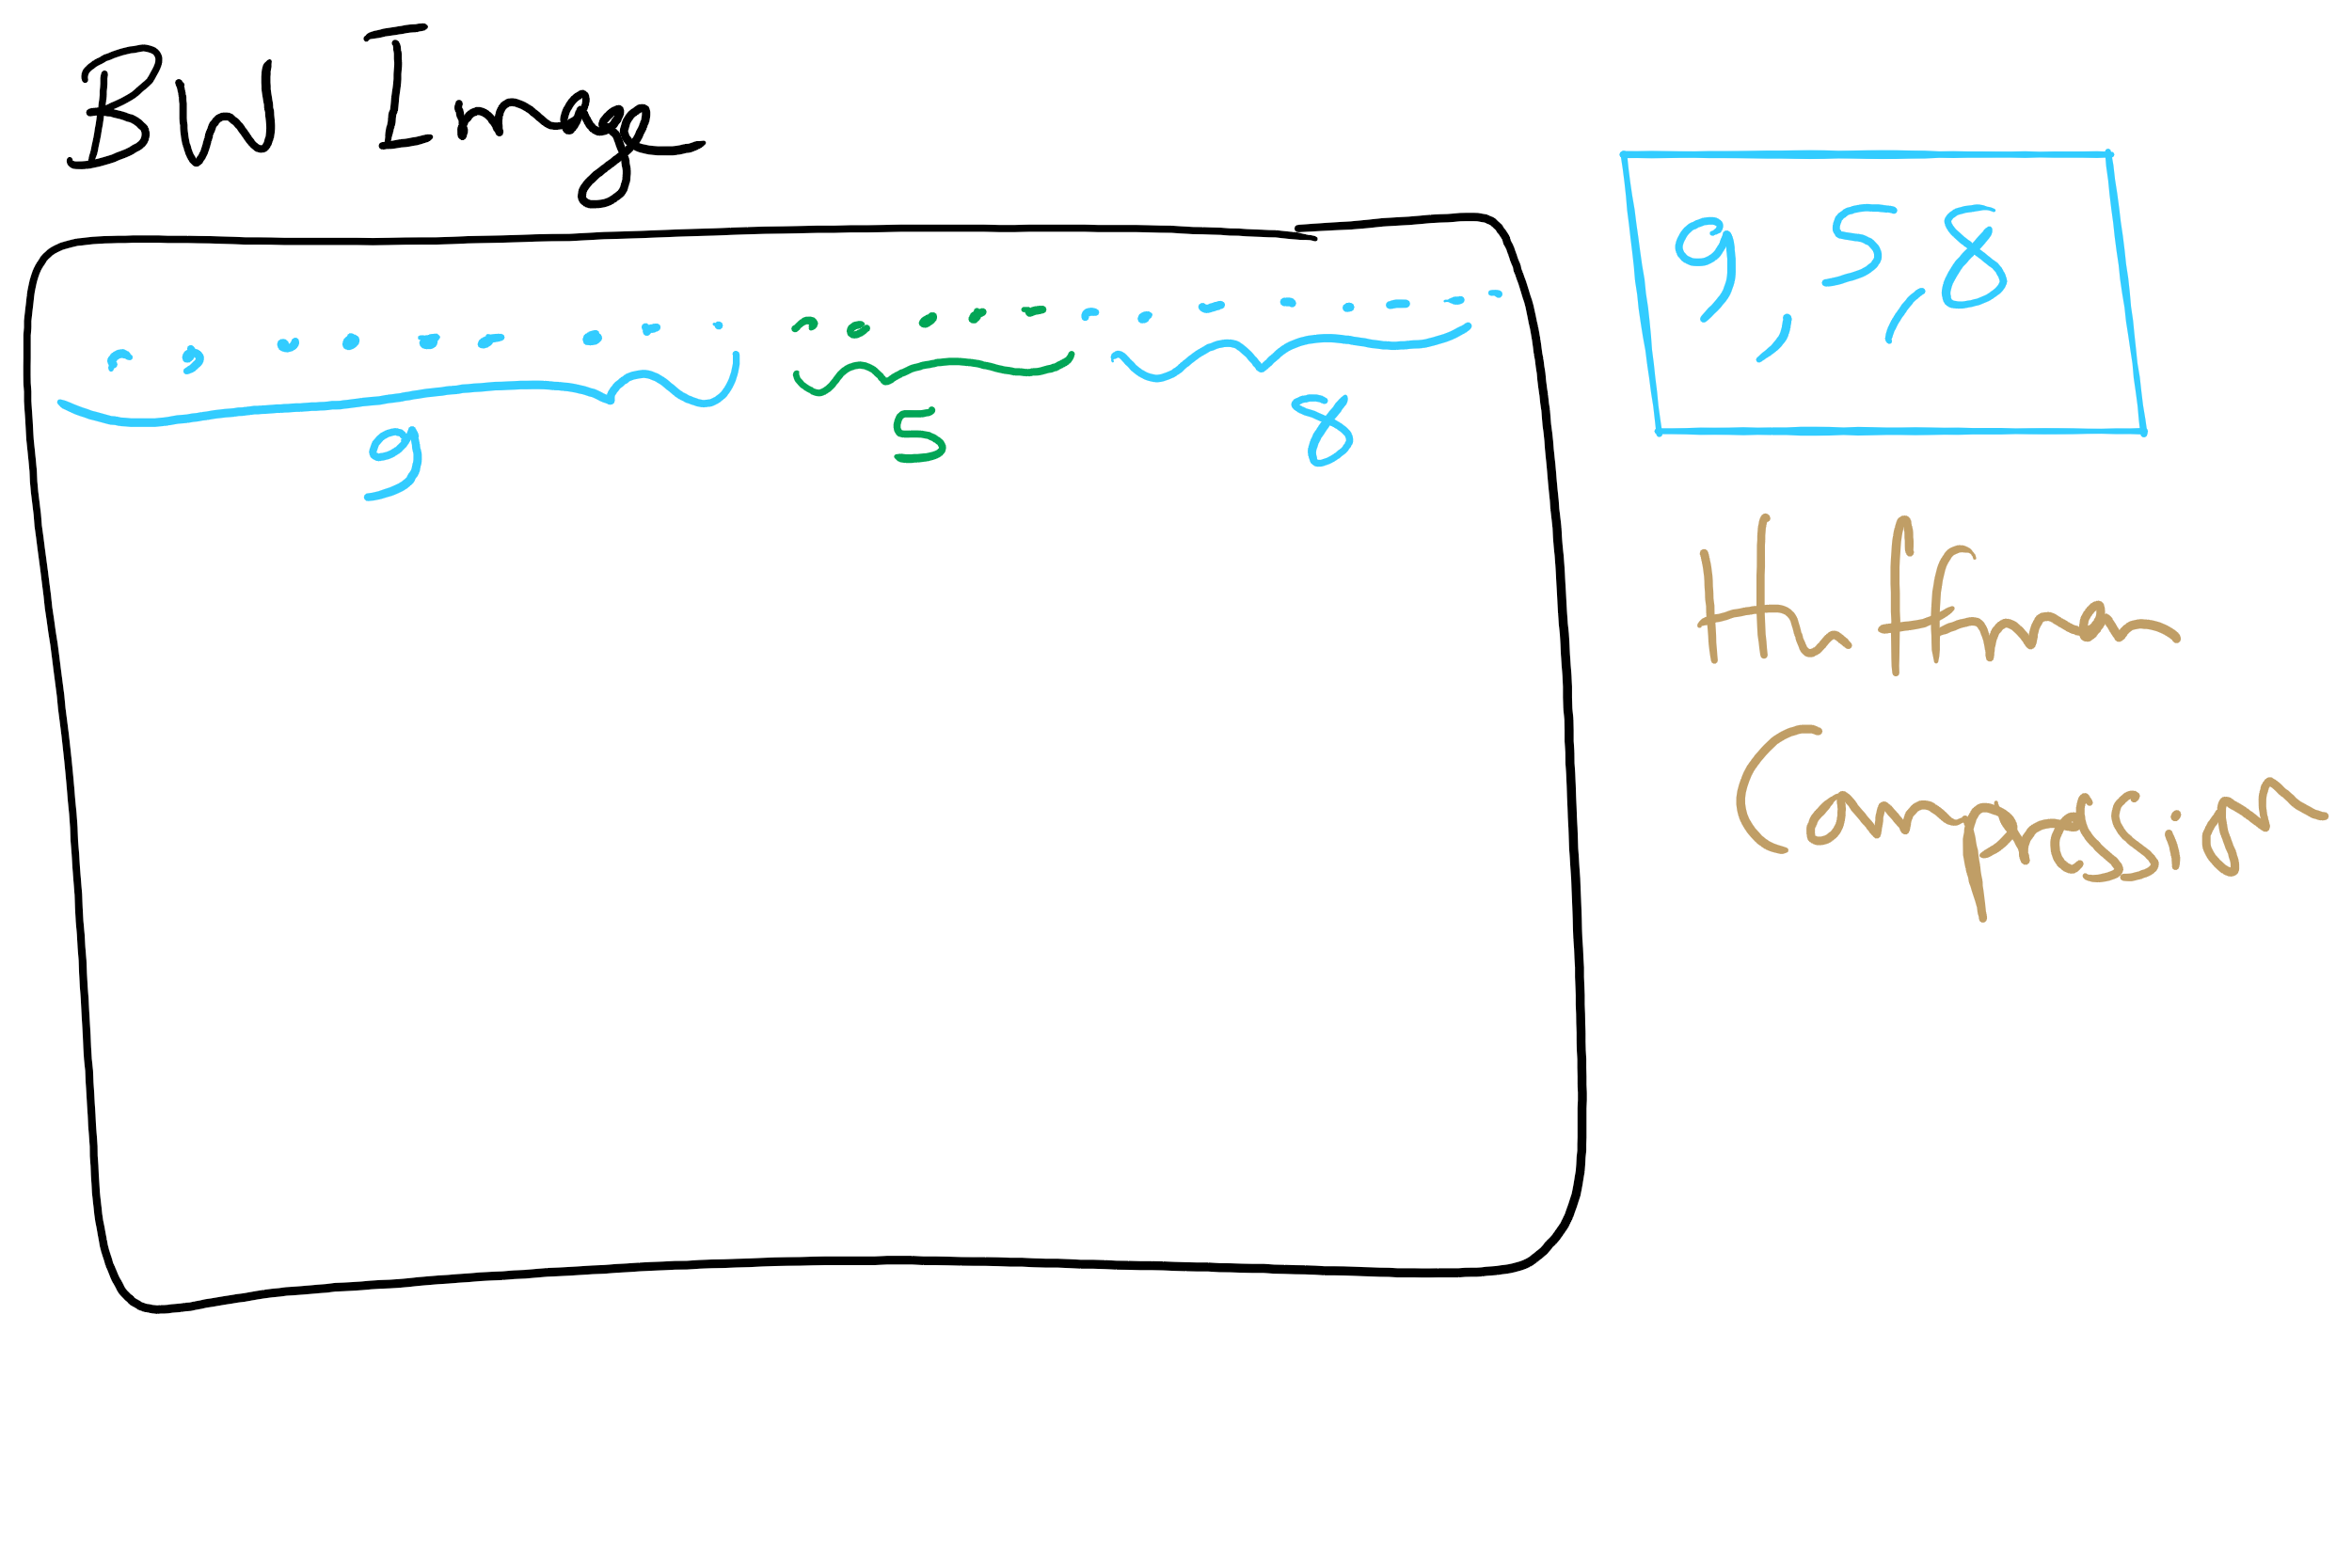 BW Image
9 5 8
9, 5, 8
Huffman
Compression